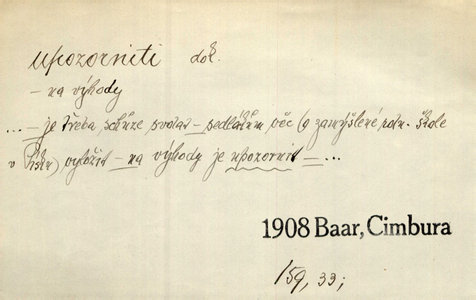 upozorniti dok.
– na výhody
... – je třeba schůze svolat – sedlákům věc (o zamýšlené roln. škole
v Písku) vyložit – na výhody je upozornit – ...
1908 Baar, Cimbura
159, 33;